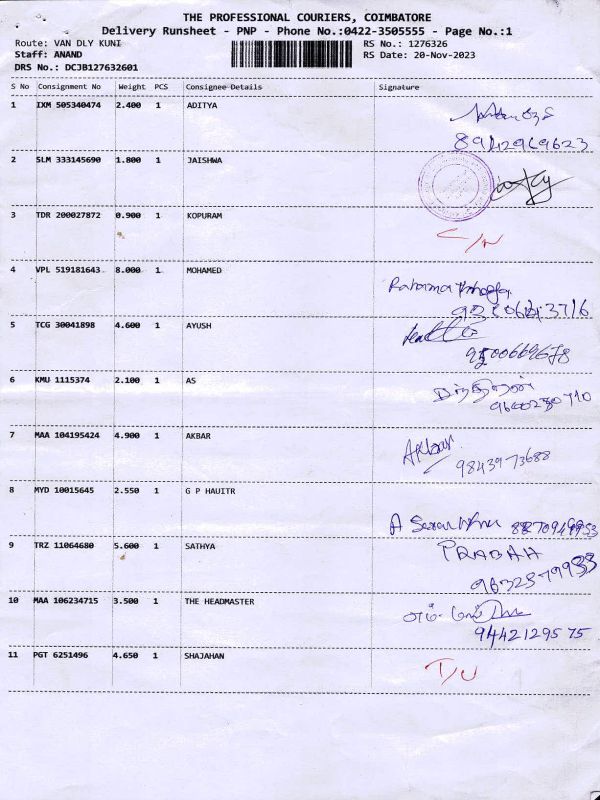 THE PROFESSIONAL COURIERS, COIMBATORE
Delivery Runsheet - PNP - Phone No.:0422-3505555 - Page No.:1
Route: VAN DLY KUNI RS No.: 1276326
Staff: ANAND RS Date: 20-Nov-2023
DRS No.: DCJB127632601
S No Consignment No Weight PCS Consignee Details Signature
1 IXM 505340474 2.400 1 ADITYA
8942969623
2 SLM 333145690 1.800 1 JAISHWA
3 TDR 200027872 0.900 1 KOPURAM
C/N
4 VPL 519181643 8.000 1 MOHAMED
5 TCG 30041898 4.600 1 AYUSH
6 KMU 1115374 2.100 1 AS
7 MAA 104195424 4.900 1 AKBAR
Akbar
9843973688
8 MYD 10015645 2.550 1 G P HAUITR
A
9 TRZ 11064680 5.600 1 SATHYA
PRABAH
9632579933
10 MAA 106234715 3.500 1 THE HEADMASTER
9442129575
11 PGT 6251496 4.650 1 SHAJAHAN
T/U